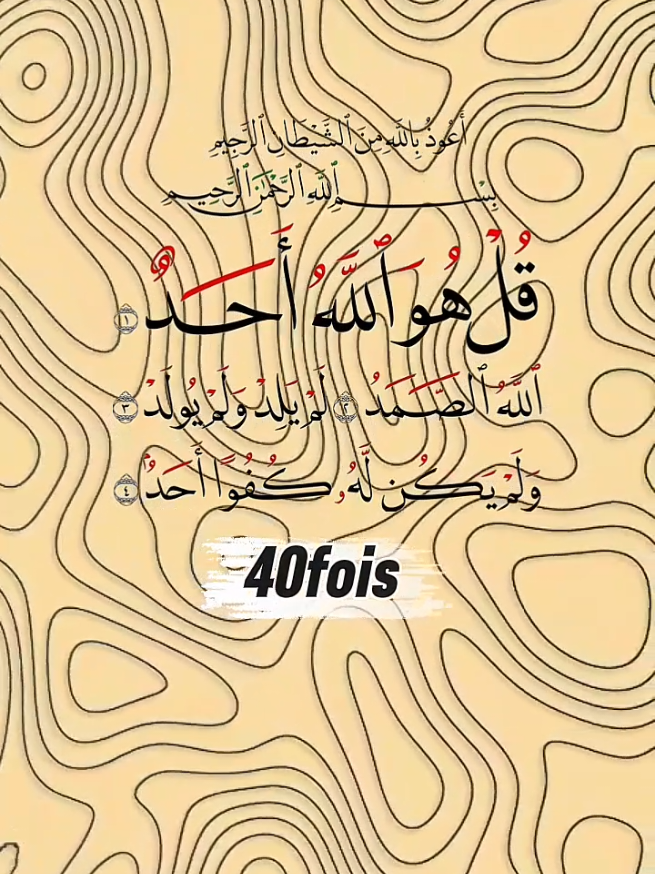 أَعُوذُ بِٱللَّهِ مِنَ ٱلشَّيْطَانِ ٱلرَّجِيمِ
بِسْمِ ٱللَّهِ ٱلرَّحْمَٰنِ ٱلرَّحِيمِ
قُلْ هُوَ ٱللَّهُ أَحَدٌ ١
ٱللَّهُ ٱلصَّمَدُ ٢ لَمْ يَلِدْ وَلَمْ يُولَدْ ٣
وَلَمْ يَكُن لَّهُۥ كُفُوًا أَحَدٌۢ ٤
40fois